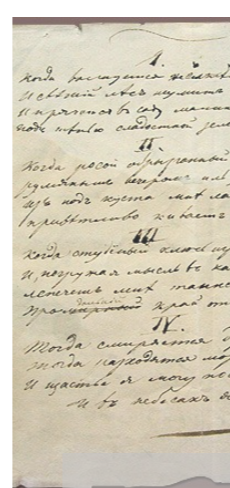 I.
Когда волнуется желтѣ
И свѣжiй лѣсъ шумитъ
И прячется въ саду малин
подъ тѣнью сладостной зеле
II
Когда росой обрызганный
румянымъ вечеромъ иль
изъ подъ куста мнѣ ла
привѣтливо киваетъ
III
Когда студеный ключъ иг
И, погружая мысль въ ка
лепечетъ мнѣ таинс
Про край от
IV.
Тогда смиряется д
тогда расходятся мор
И щастье я могу пос
И въ небесахъ